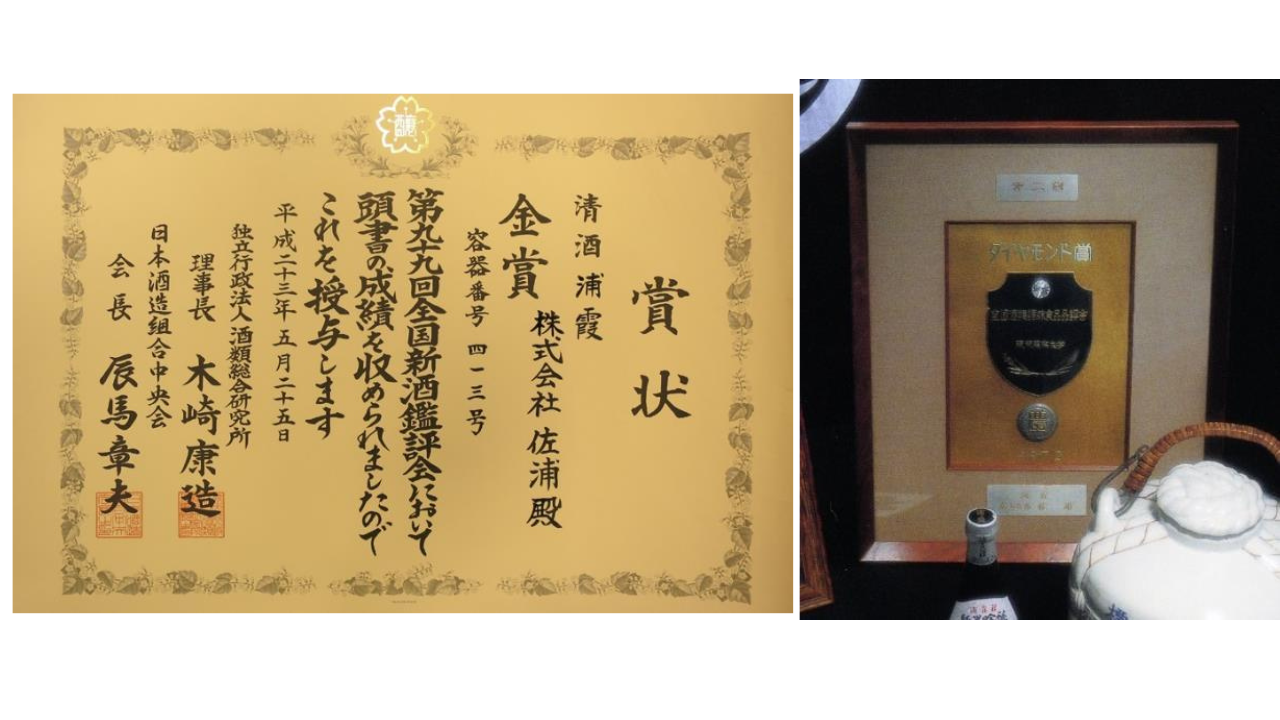 醸
賞状
清酒 浦霞
株式会社 佐浦 殿
金賞
容器番号 四一三号
第九十九回全国新酒鑑評会において
頭書の成績を収められましたので
これを授与します
平成二十三年五月二十五日
独立行政法人 酒類総合研究所
理事長 木崎康造
日本酒造組合中央会
会長 辰馬章夫
ダイヤモンド賞